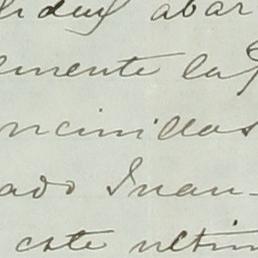 abar
lmente la
ncinillas
ado Juan-
este ultim